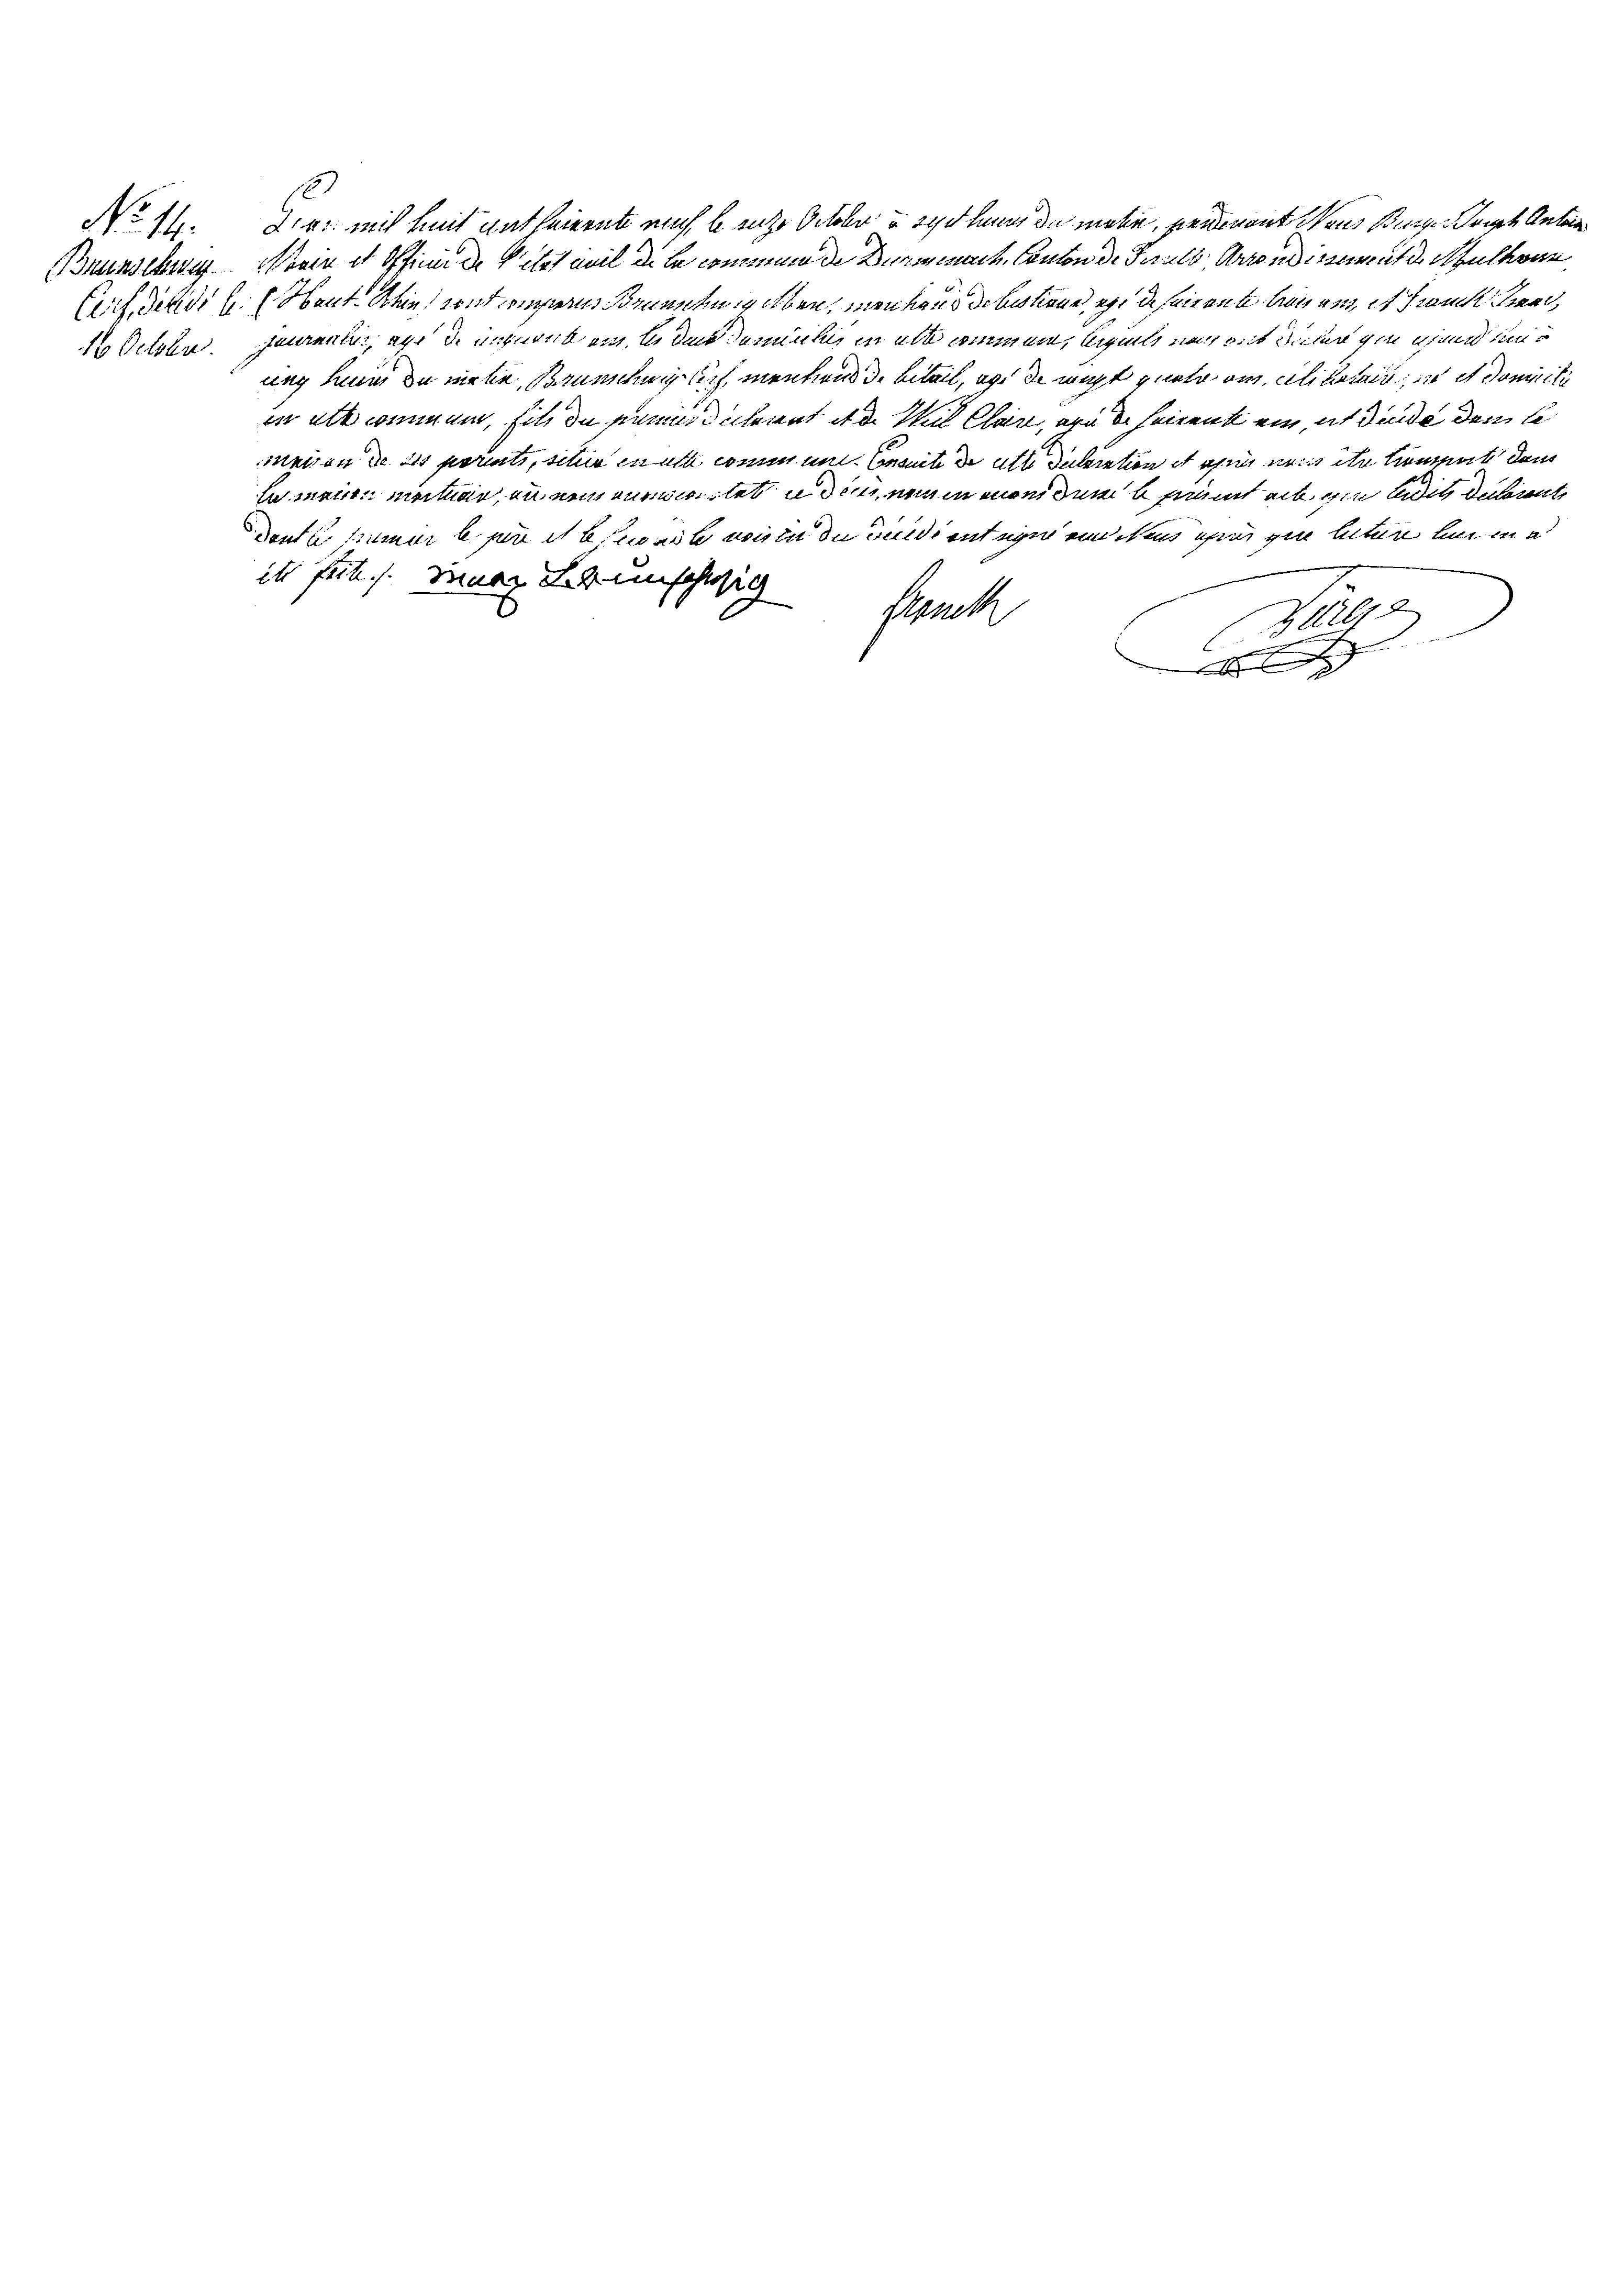 N° 14.
Brunschwig
Cerf, décédé le
16 Octobre.
L'an mil huit cent soixante neuf, le seize Octobre à sept heures du matin, pardevant Nous Burge Joseph Antoine
Maire et Officier de l'état civil de la commune de Durmenach, Canton de Ferrette, Arrondissement de Mulhouse
(Haut-Rhin) sont comparus Brunschwig marchand de bestiaux, agé de soixante trois ans, et Franck
journalier, agé de cinquante ans, les deux domiciliés en cette commune, lesquels nous ont déclaré que ajourd'hui à
cinq heures du matin, Brunschwig Cerf, marchand de bétail, agé de vingt quatre ans, célibataire, né et domicilié
en cette commune, fils du premier déclarant et de Weil Claire, agée de soixante ans, est décédé dans la
maison de ses parents, située en cette commune. Ensuite de cette déclaration et après nous être transporté dans
la maison mortuaire, où nous avons constaté ce décès, nous en avons dressé le présent acte que lesdits déclarants
dont le premier le père et le second le voisin du décédé ont signé avec Nous après que lecture leur en a
été faite ./. Brunschwig
Franck
Bürge